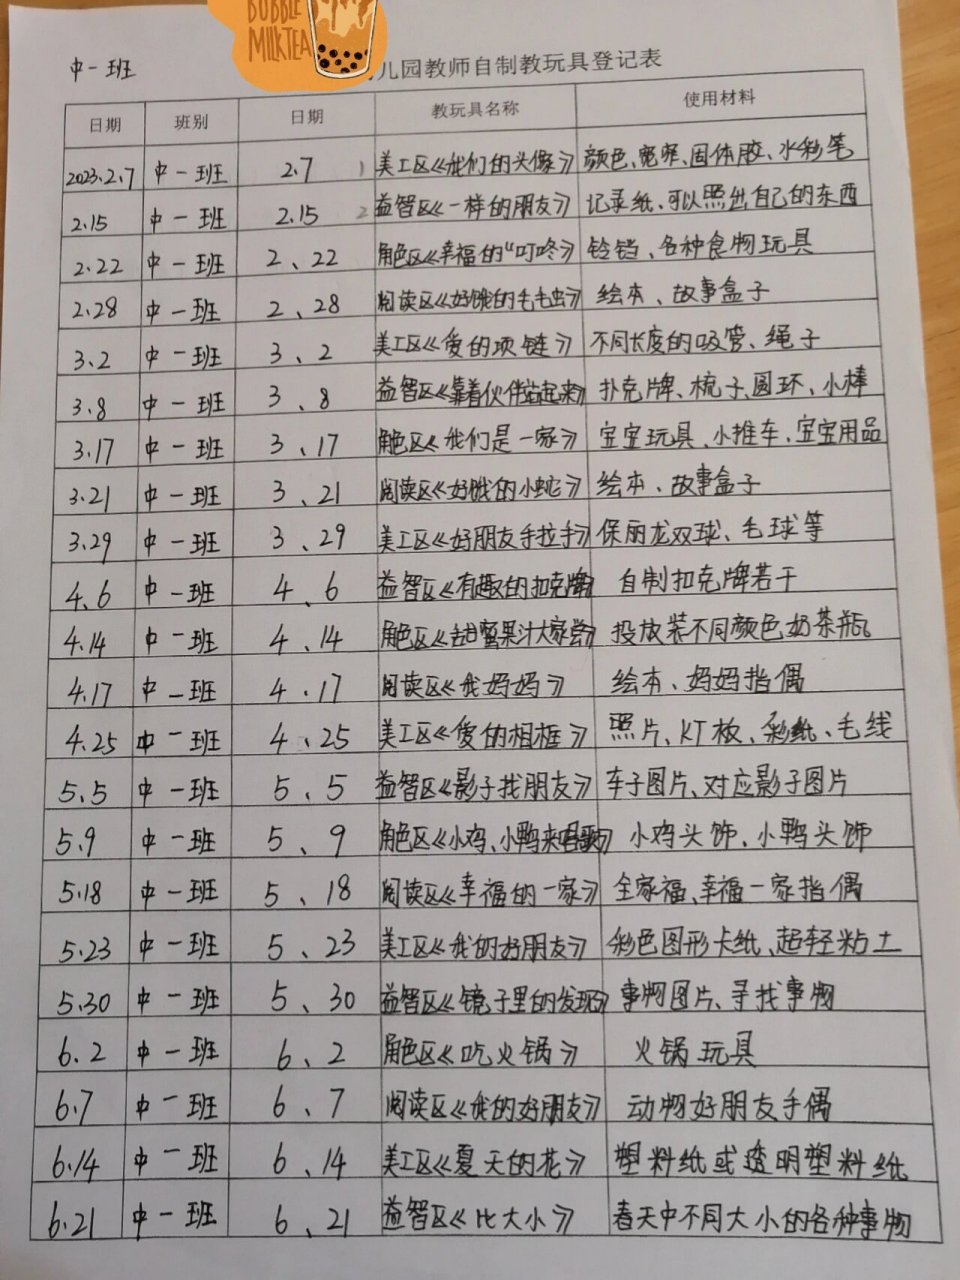 BUBBLE
MILKTEA
中一班
儿园教师自制教玩具登记表
日期 班别 日期 教玩具名称 使用材料
2023.2.7 中一班 2.7 1 美工区《我们的头像》 颜色、宽窄、固体胶、水彩笔
2.15 中一班 2.15 2 益智区《一样的朋友》 记录纸、可以照出自己的东西
2.22 中一班 2、22 角色区《幸福的“叮咚》 铃铛、各种食物玩具
2.28 中一班 2、28 阅读区《好饿的毛毛虫》 绘本、故事盒子
3.2 中一班 3、2 美工区《爱的项链》 不同长度的吸管、绳子
3.8 中一班 3、8 益智区《靠着伙伴站起来》 扑克牌、梳子、圆环、小棒
3.17 中一班 3、17 角色区《我们是一家》 宝宝玩具、小推车、宝宝用品
3.21 中一班 3、21 阅读区《好饿的小蛇》 绘本、故事盒子
3.29 中一班 3、29 美工区《好朋友手拉手》 保丽龙双球、毛球等
4.6 中一班 4、6 益智区《有趣的扣克牌》 自制扣克牌若干
4.14 中一班 4、14 角色区《甜蜜果汁大家尝》 投放装不同颜色奶茶瓶
4.17 中一班 4、17 阅读区《我妈妈》 绘本、妈妈指偶
4.25 中一班 4、25 美工区《爱的相框》 照片、KT板、彩纸、毛线
5.5 中一班 5、5 益智区《影子找朋友》 车子图片、对应影子图片
5.9 中一班 5、9 角色区《小鸡、小鸭来唱歌》 小鸡头饰、小鸭头饰
5.18 中一班 5、18 阅读区《幸福的一家》 全家福、幸福一家指偶
5.23 中一班 5、23 美工区《我的好朋友》 彩色图形卡纸、超轻粘土
5.30 中一班 5、30 益智区《镜子里的发现》 事物图片、寻找事物
6.2 中一班 6、2 角色区《吃火锅》 火锅玩具
6.7 中一班 6、7 阅读区《我的好朋友》 动物好朋友手偶
6.14 中一班 6、14 美工区《夏天的花》 塑料纸或透明塑料纸
6.21 中一班 6、21 益智区《比大小》 春天中不同大小的各种事物